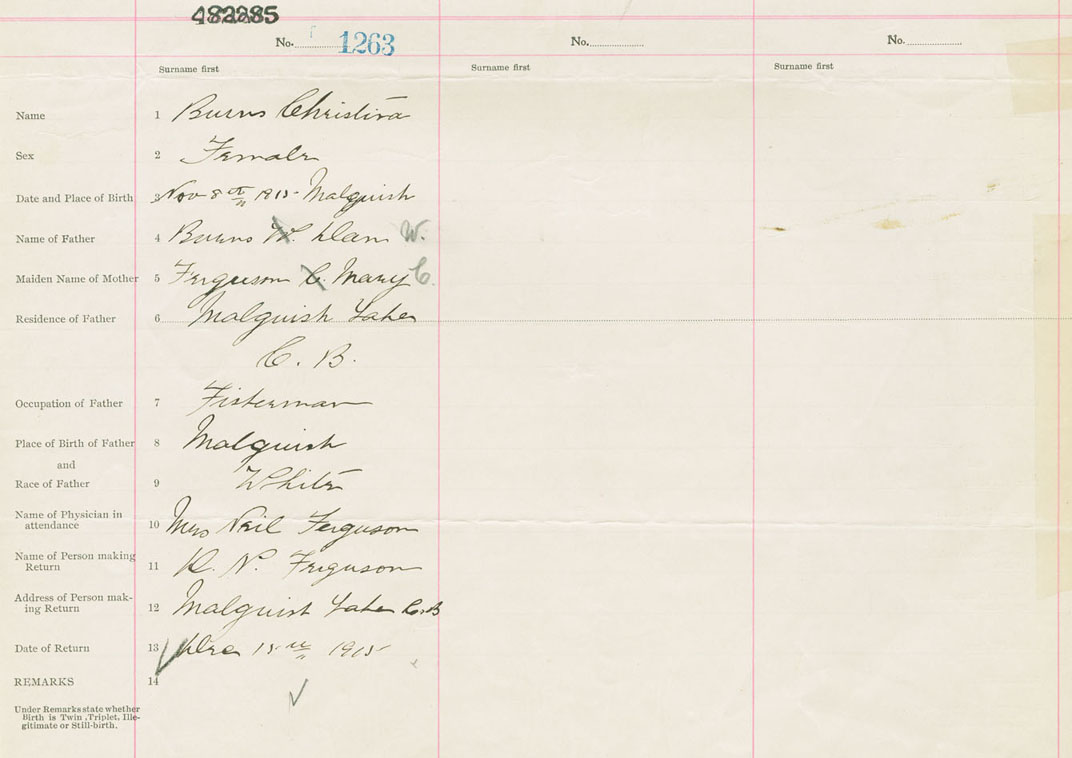 482285
No. 1263
No.
No.
Surname first
Surname first
Surname first
Name 1 Burns Christina
Sex 2 Female
Date and Place of Birth 3 Nov 8th 1915 Malguish
Name of Father 4 Burns W. Dan W.
Maiden Name of Mother 5 Ferguson C. Mary C.
Residence of Father 6 Malguish Lake
C. B.
Occupation of Father 7 Fisterman
Place of Birth of Father 8 Malguish
and
Race of Father 9 White
Name of Physician in
attendance 10 Mrs Neil Ferguson
Name of Person making
Return 11 D. N. Ferguson
Address of Person mak-
ing Return 12 Malguish Lake C.B
Date of Return 13 Dec 15th 1915
REMARKS 14
Under Remarks state whether
Birth is Twin ,Triplet, Ille-
gitimate or Still-birth.